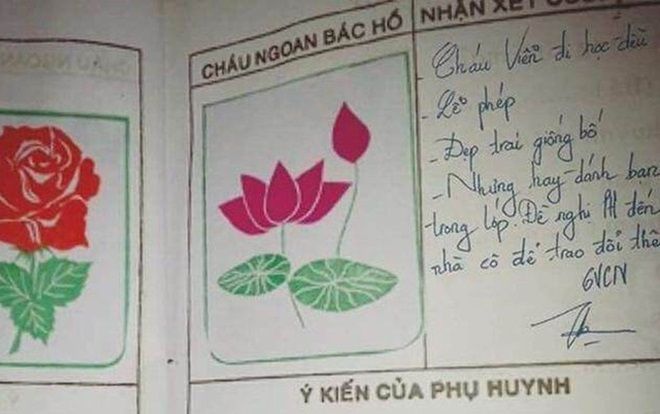 CHÁU NGOAN BÁC HỒ
NHẬN XÉT
- Cháu Viễn đi học đều
- Lễ phép
- Đẹp trai giống bố
- Nhưng hay đánh bạn
trong lớp. Đề nghị PH đến
nhà cô để trao đổi thê
GVCN
Ý KIẾN CỦA PHỤ HUYNH